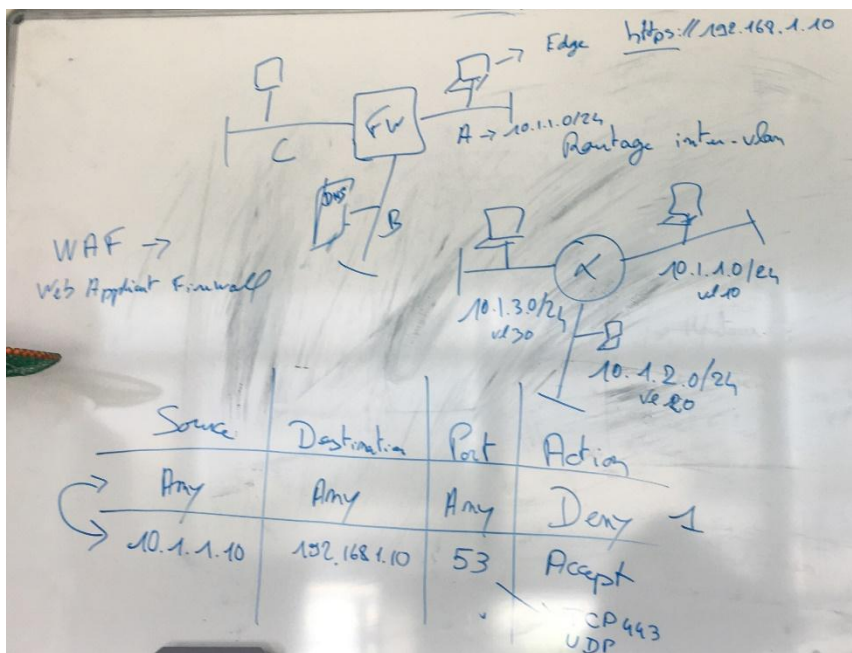 → Edge https://192.168.1.10
FW
C
A → 10.1.1.0/24
Routage inter-vlan
DNS
B
WAF →
Web Applicant Firewall
10.1.3.0/24
vl30
10.1.1.0/24
vl10
10.1.2.0/24
Source Destination Port Action
Any Any Any Deny 1
10.1.1.10 192.1681.10 53 Accept
CP 443
UDP